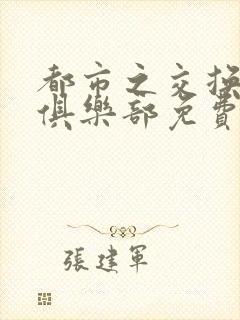 都市之交换
俱樂部免費
張建軍